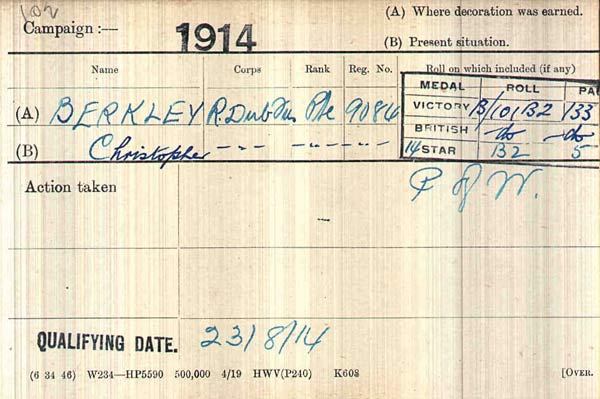 102
(A) Where decoration was earned.
Campaign :— 1914
(B) Present situation.
Name Corps Rank Reg. No. Roll on which included (if any)
MEDAL ROLL PA
(A) BERKLEY R. Dub Fus Pte 9084 VICTORY B/101 B2 133
BRITISH do do
(B) Christopher — " — — " — " — 14 STAR B2 5
Action taken P of W.
QUALIFYING DATE. 23/8/14
(6 34 46) W234—HP5590 500,000 4/19 HWV(P240) K608 [OVER.